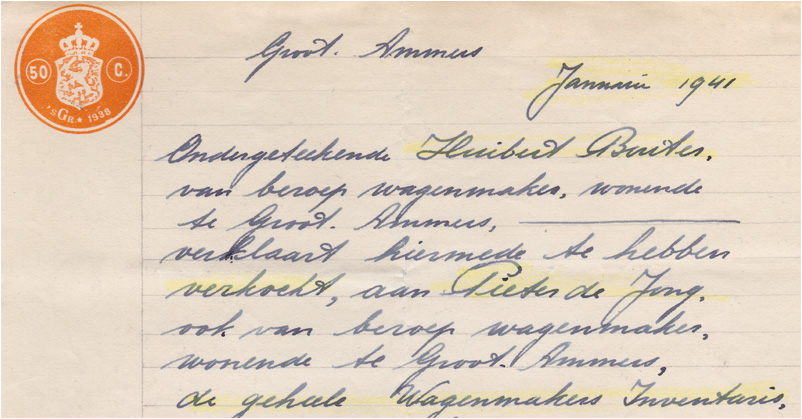 50 C.
'sGr.★ 1938
Groot. Ammers
Januari 1941
Ondergeteekende Huibert Bouter,
van beroep wagenmaker, wonende
te Groot. Ammers,
verklaart hiermede te hebben
verkocht, aan Pieter de Jong,
ook van beroep wagenmaker,
wonende te Groot. Ammers,
de geheele Wagenmakers Inventaris,